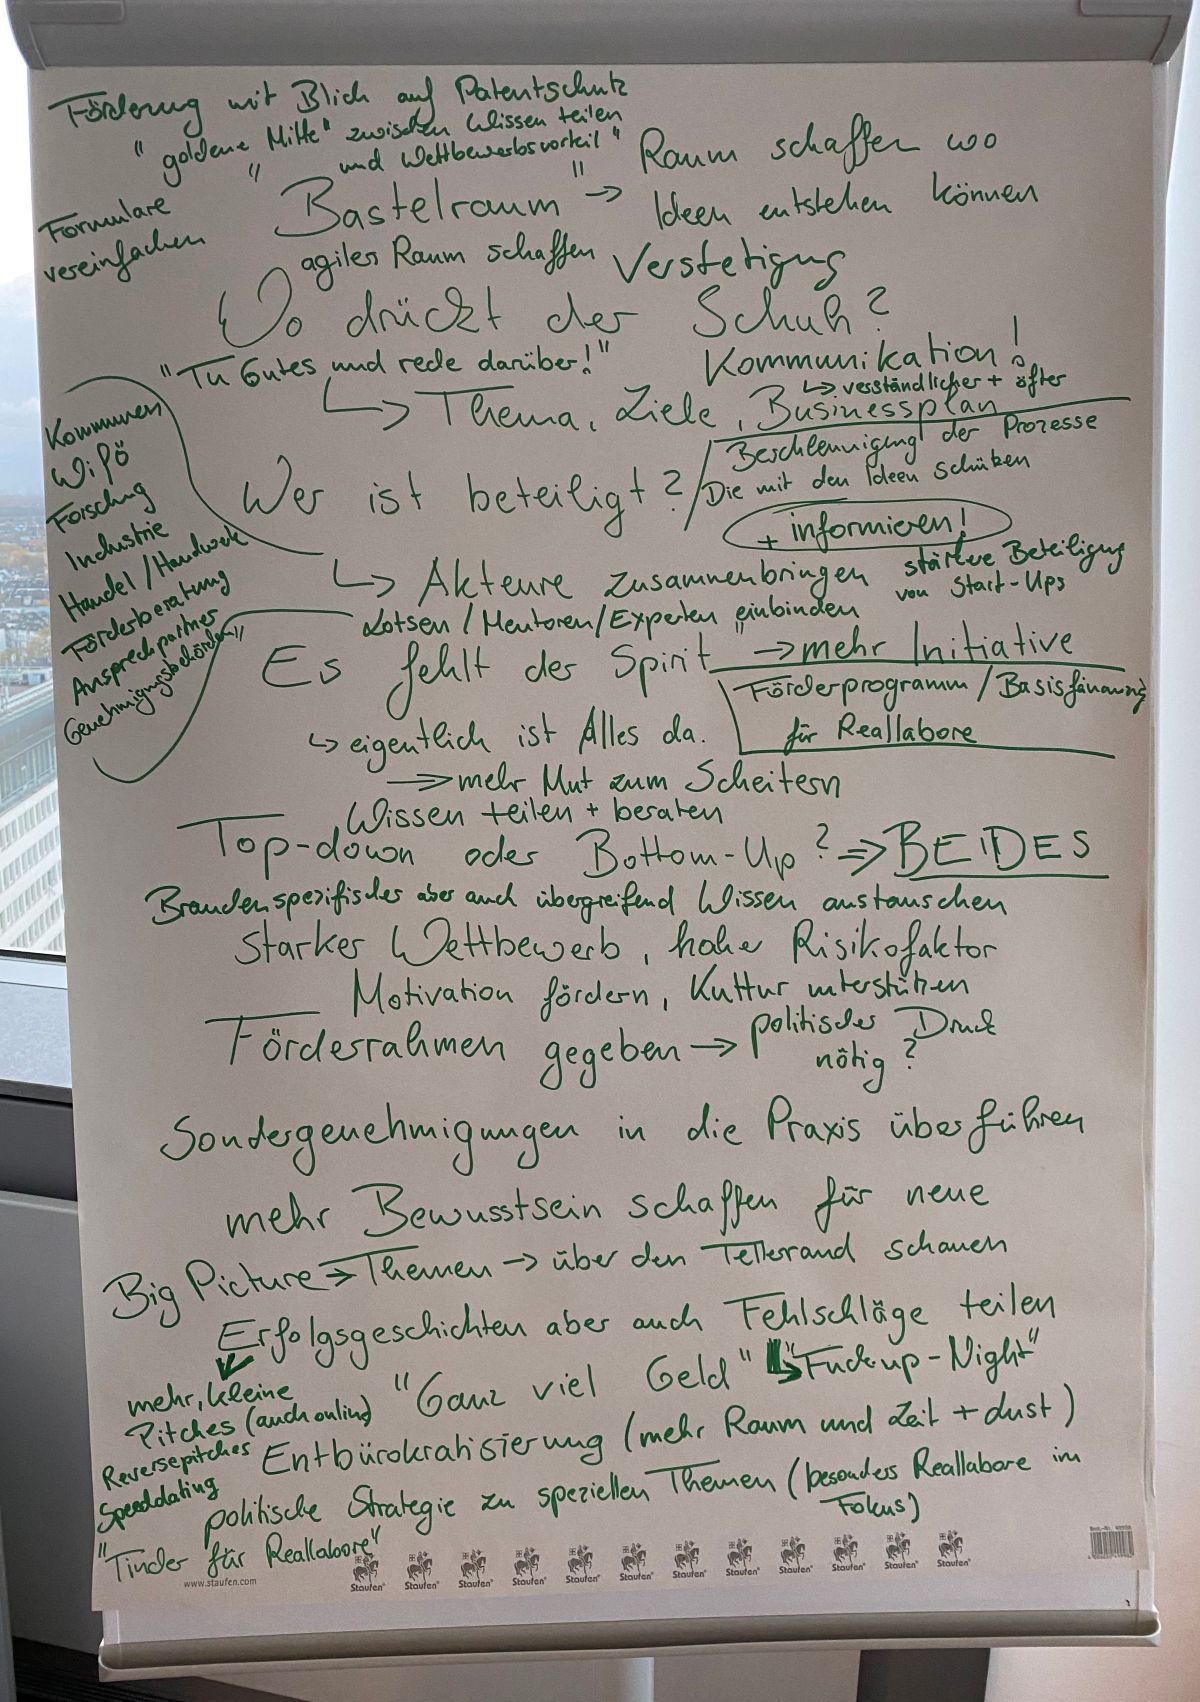 Förderung mit Blick auf Patentschutz
"goldene Mitte" zwischen Wissen teilen
und Wettbewerbsvorteil"
Formulare
vereinfachen
"Bastelraum" → Raum schaffen wo
Ideen entstehen können
agiler Raum schaffen
Verstetigung
Wo drückt der Schuh?
"Tu Gutes und rede darüber!"
Kommunikation!
↳ verständlicher + öfter
↳ Thema, Ziele, Businessplan
Beschleunigung der Prozesse
Die mit den Ideen schützen
+ informieren!
Wer ist beteiligt?
Kommunen
WiFö
Forschung
Industrie
Handel / Handwerk
Förderberatung
Ansprechpartner
Genehmigungsbehörden
↳ Akteure zusammenbringen
stärkere Beteiligung
von Start-Ups
Lotsen / Mentoren / Experten einbinden
"Es fehlt der Spirit" → mehr Initiative
Förderprogramm / Basisfinanung
für Reallabore
↳ eigentlich ist Alles da.
⇒ mehr Mut zum Scheitern
Wissen teilen + beraten
Top-down oder Bottom-Up? ⇒ BEIDES
Branchenspezifisches aber auch übergreifend Wissen austauschen
Starker Wettbewerb, hoher Risikofaktor
Motivation fördern, Kultur unterstützen
Förderrahmen gegeben → politischer Druck
nötig?
Sondergenehmigungen in die Praxis überführen
mehr Bewusstsein schaffen für neue
Big Picture → Themen → über den Tellerrand schauen
Erfolgsgeschichten aber auch Fehlschläge teilen
↳ "Fuck-up-Night"
mehr, kleine
Pitches (auch online)
Reversepitches
Speeddating
"Tinder für Reallabore"
"Ganz viel Geld"
Entbürokratisierung (mehr Raum und Zeit + dust)
politische Strategie zu speziellen Themen (besonders Reallabore im
Fokus)
www.staufen.com
Staufen® Staufen® Staufen® Staufen® Staufen® Staufen® Staufen® Staufen® Staufen® Staufen® Staufen® Staufen®